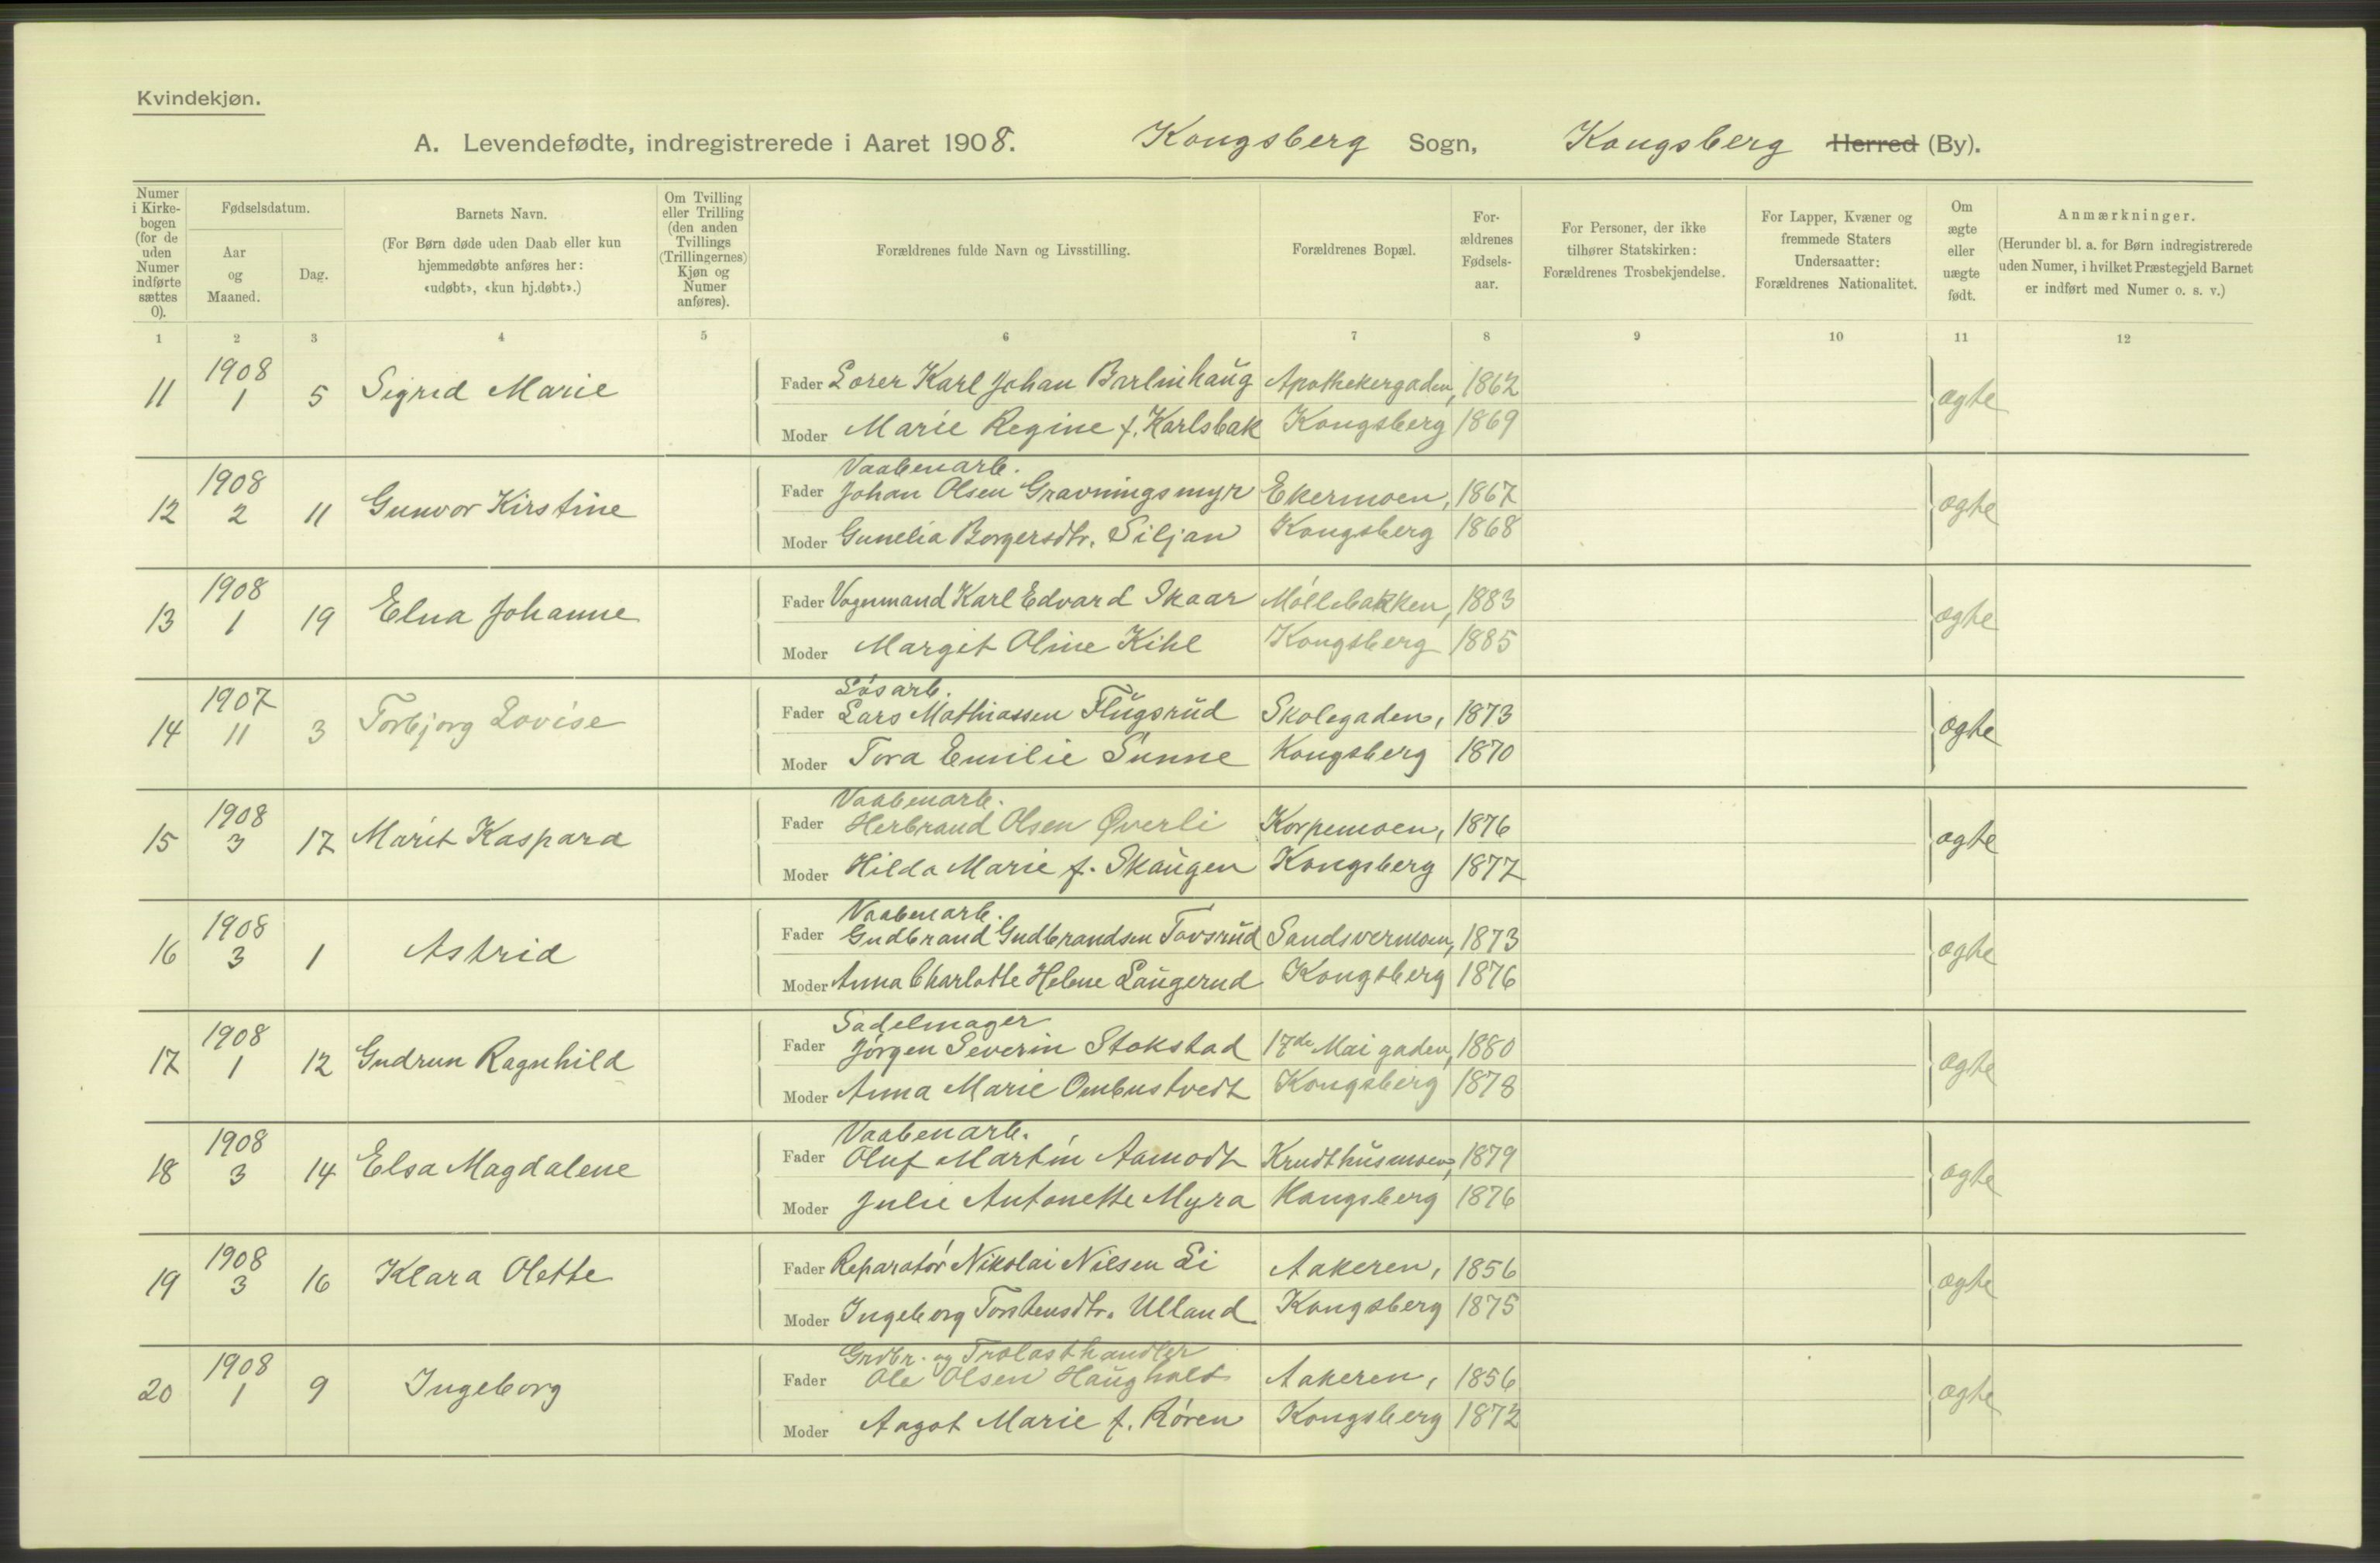 Kvindekjøn.
A. Levendefødte, indregistrerede i Aaret 1908. Kongsberg Sogn, Kongsberg Herred (By).
Numer i Kirke-bogen (for de uden Numer indførte sættes 0).
Fødselsdatum.
Aar og Maaned.
Dag.
Barnets Navn.
(For Børn døde uden Daab eller kun hjemmedøbte anføres her: «udøbt», «kun hj.døbt».)
Om Tvilling eller Trilling (den anden Tvillings (Trillingernes) Kjøn og Numer anføres).
Forældrenes fulde Navn og Livsstilling.
Forældrenes Bopæl.
For-ældrenes Fødsels-aar.
For Personer, der ikke tilhører Statskirken: Forældrenes Trosbekjendelse.
For Lapper, Kvæner og fremmede Staters Undersaatter: Forældrenes Nationalitet.
Om ægte eller uægte født.
Anmærkninger.
(Herunder bl. a. for Børn indregistrerede uden Numer, i hvilket Præstegjeld Barnet er indført med Numer o. s. v.)
1 2 3 4 5 6 7 8 9 10 11 12
11 1908 1 5 Sigrid Marie
Fader Karl Johan Apothekergaden, 1862 ægte
Moder Marie Regine f. Karlsbak Kongsberg 1869
12 1908 2 11 Gunvor Kirstine
Vaabenarb.
Fader Johan Olsen Gravningsmyr Ekermoen, 1867 ægte
Moder Gunelia Borgersdtr. Siljan Kongsberg 1868
13 1908 1 19 Elna Johanne
Fader Vognmand Karl Edvard Skaar Møllebakken, 1883 ægte
Moder Margit Oline Kihl Kongsberg 1885
14 1907 11 3 Torbjorg Lovise
Løsarb.
Fader Lars Mathiassen Flugsrud Skolegaden, 1873 ægte
Moder Tora Emilie Sunne Kongsberg 1870
15 1908 3 17 Marit Kaspara
Vaabenarb.
Fader Herbrand Olsen Øverli Korpemoen, 1876 ægte
Moder Hilda Marie f. Skaugen Kongsberg 1877
16 1908 3 1 Astrid
Vaabenarb.
Fader Gudbrand Gudbrandsen Tovsrud Sandsvermoen, 1873 ægte
Moder Anna Charlotte Helene Laugerud Kongsberg 1876
17 1908 1 12 Gudrun Ragnhild
Sadelmager
Fader Jørgen Severin Stokstad 17de Mai gaden, 1880 ægte
Moder Anna Marie Ombustvedt Kongsberg 1878
18 1908 3 14 Elsa Magdalene
Vaabenarb.
Fader Oluf Martin Aamodt Krudthusmoen, 1879 ægte
Moder Julie Antonette Myra Kongsberg 1876
19 1908 3 16 Klara Olette
Fader Reparatør Nikolai Nilsen Li Aakeren, 1856 ægte
Moder Ingeborg Torstensdtr. Ulland Kongsberg 1875
20 1908 1 9 Ingeborg
Grdbr. og Trælasthandler
Fader Ole Olsen Haugholt Aakeren, 1856 ægte
Moder Aagot Marie f. Røren Kongsberg 1872